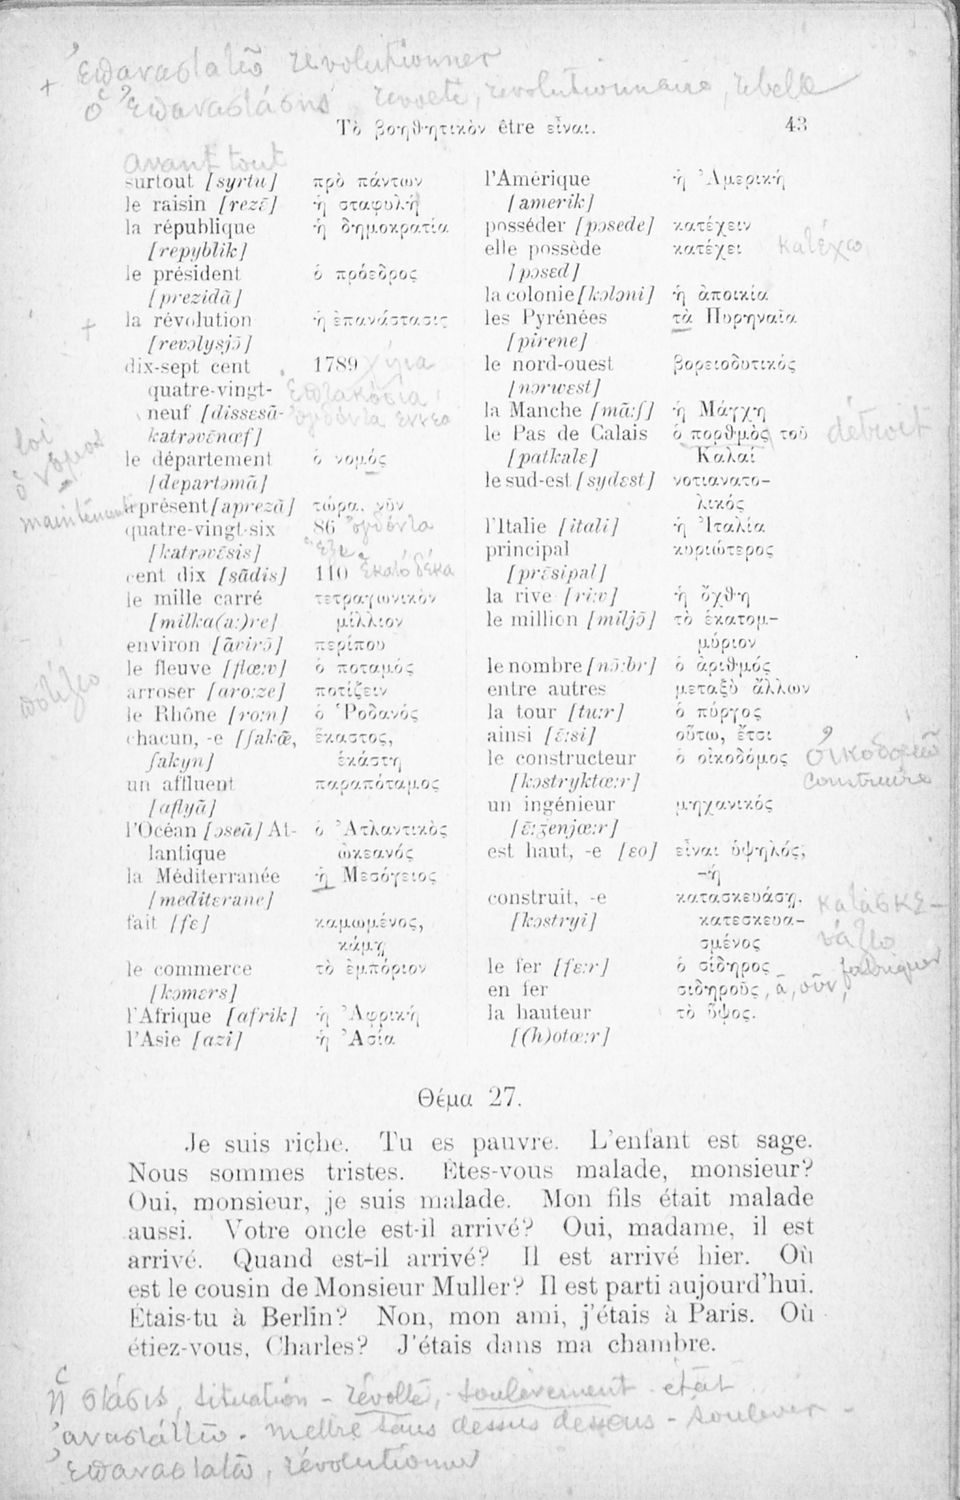 + ἐπαναστατῶ révolutionner
ὁ ἐπαναστάσης révolté, révolutionnaire, rebelle
Τὸ βοηθητικὸν être εἶναι. 43
avant tout
surtout [syrtu] πρὸ πάντων
le raisin [rezɛ̃] ἡ σταφυλή
la république ἡ δημοκρατία
[repyblik]
le président ὁ πρόεδρος
[prezidɑ̃]
+ la révolution ἡ ἐπανάστασις
[revɔlysjɔ̃]
dix-sept cent 1789 χίλια
quatre-vingt- ἑπτακόσια
neuf [dissɛsɑ̃- ὀγδόντα ἐννεα
katrəvɛ̃nœf]
loi
ὁ νόμος
le département ὁ νομός
[departəmɑ̃]
maintenant
à présent [aprezɑ̃] τώρα, νῦν
quatre-vingt-six 86 ὀγδόντα
[katrəvɛ̃sis] ἕξι
cent dix [sɑ̃dis] 110 ἑκατὸ δέκα
le mille carré τετραγωνικὸν
[milka(a:)re] μίλλιον
environ [ɑ̃virɔ̃] περίπου
le fleuve [flœ:v] ὁ ποταμός
arroser [aro:ze] ποτίζειν
ποτίζω
le Rhône [ro:n] ὁ Ῥοδανός
chacun, -e [ʃakœ̃, ἕκαστος,
ʃakyn] ἑκάστη
un affluent παραπόταμος
[aflyɑ̃]
l'Océan [ɔseɑ̃] At- ὁ Ἀτλαντικὸς
lantique ὠκεανός
la Méditerranée ἡ Μεσόγειος
[mediterane]
fait [fɛ] καμωμένος,
κάμῃ
le commerce τὸ ἐμπόριον
[kɔmɛrs]
l'Afrique [afrik] ἡ Ἀφρική
l'Asie [azi] ἡ Ἀσία
l'Amérique ἡ Ἀμερική
[amerik]
posséder [pɔsede] κατέχειν
elle possède κατέχει κατέχω
[pɔsɛd]
la colonie [kɔlɔni] ἡ ἀποικία
les Pyrénées τὰ Πυρηναῖα
[pirene]
le nord-ouest βορειοδυτικός
[nɔrwɛst]
la Manche [mɑ̃:ʃ] ἡ Μάγχη
le Pas de Calais ὁ πορθμὸς τοῦ détroit
[patkalɛ] Καλαί
le sud-est [sydɛst] νοτιανατο-
λικός
l'Italie [itali] ἡ Ἰταλία
principal κυριώτερος
[prɛ̃sipal]
la rive [ri:v] ἡ ὄχθη
le million [miljɔ̃] τὸ ἑκατομ-
μύριον
le nombre [nɔ̃:br] ὁ ἀριθμός
entre autres μεταξὺ ἄλλων
la tour [tu:r] ὁ πύργος
ainsi [ɛ̃:si] οὕτω, ἔτσι
le constructeur ὁ οἰκοδόμος οἰκοδομῶ
[kɔstryktœ:r] construire
un ingénieur μηχανικός
[ɛ̃:ʒenjœ:r]
est haut, -e [ɛo] εἶναι ὑψηλός,
-ή
construit, -e κατασκευάσῃ, κατασκε-
[kɔstryi] κατεσκευα- υάζω
σμένος fabriquer
le fer [fɛ:r] ὁ σίδηρος
en fer σιδηροῦς, ᾶ, οῦν,
la hauteur τὸ ὕψος.
[(h)otœ:r]
Θέμα 27.
Je suis riche. Tu es pauvre. L'enfant est sage.
Nous sommes tristes. Êtes-vous malade, monsieur?
Oui, monsieur, je suis malade. Mon fils était malade
aussi. Votre oncle est-il arrivé? Oui, madame, il est
arrivé. Quand est-il arrivé? Il est arrivé hier. Où
est le cousin de Monsieur Muller? Il est parti aujourd'hui.
Étais-tu à Berlin? Non, mon ami, j'étais à Paris. Où
étiez-vous, Charles? J'étais dans ma chambre.
ἡ στάσις, situation - révolte, soulèvement - état
ἀναστάττω - mettre sens dessus dessous - soulever -
ἐπαναστατῶ, révolutionner